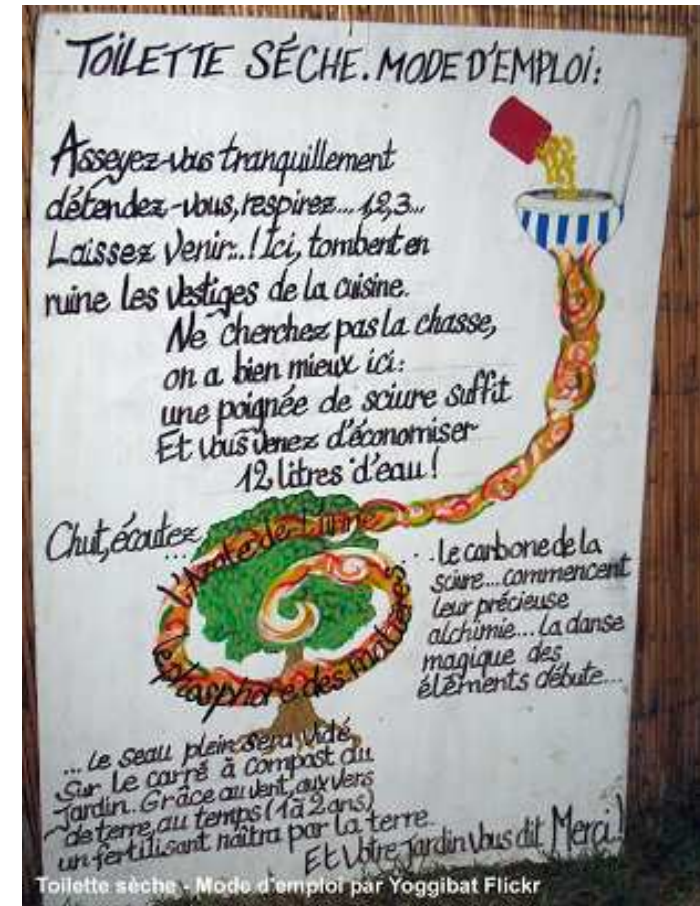 TOILETTE SÉCHE. MODE D'EMPLOI:
Asseyez-vous tranquillement
détendez-vous, respirez... 1,2,3...
Laissez venir...! Ici, tombent en
ruine les vestiges de la cuisine.
Ne cherchez pas la chasse,
on a bien mieux ici:
une poignée de sciure suffit
Et vous venez d'économiser
12 litres d'eau!
Chut, écoutez...
l'Azote de l'urine
le phosphore des matières
... Le carbone de la
sciure... commencent
leur précieuse
alchimie... La danse
magique des
éléments débute...
... Le seau plein sera vidé
sur le carré à compost du
jardin. Grâce au vent, aux vers
de terre, au temps (1 à 2 ans)
un fertilisant naîtra par la terre
Et votre jardin vous dit Merci!
Toilette sèche - Mode d'emploi par Yoggibat Flickr